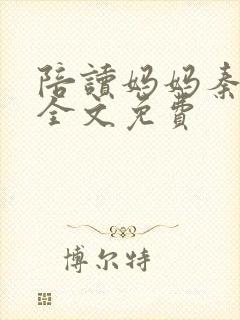 陪讀妈妈秦
全文免費
博尔特